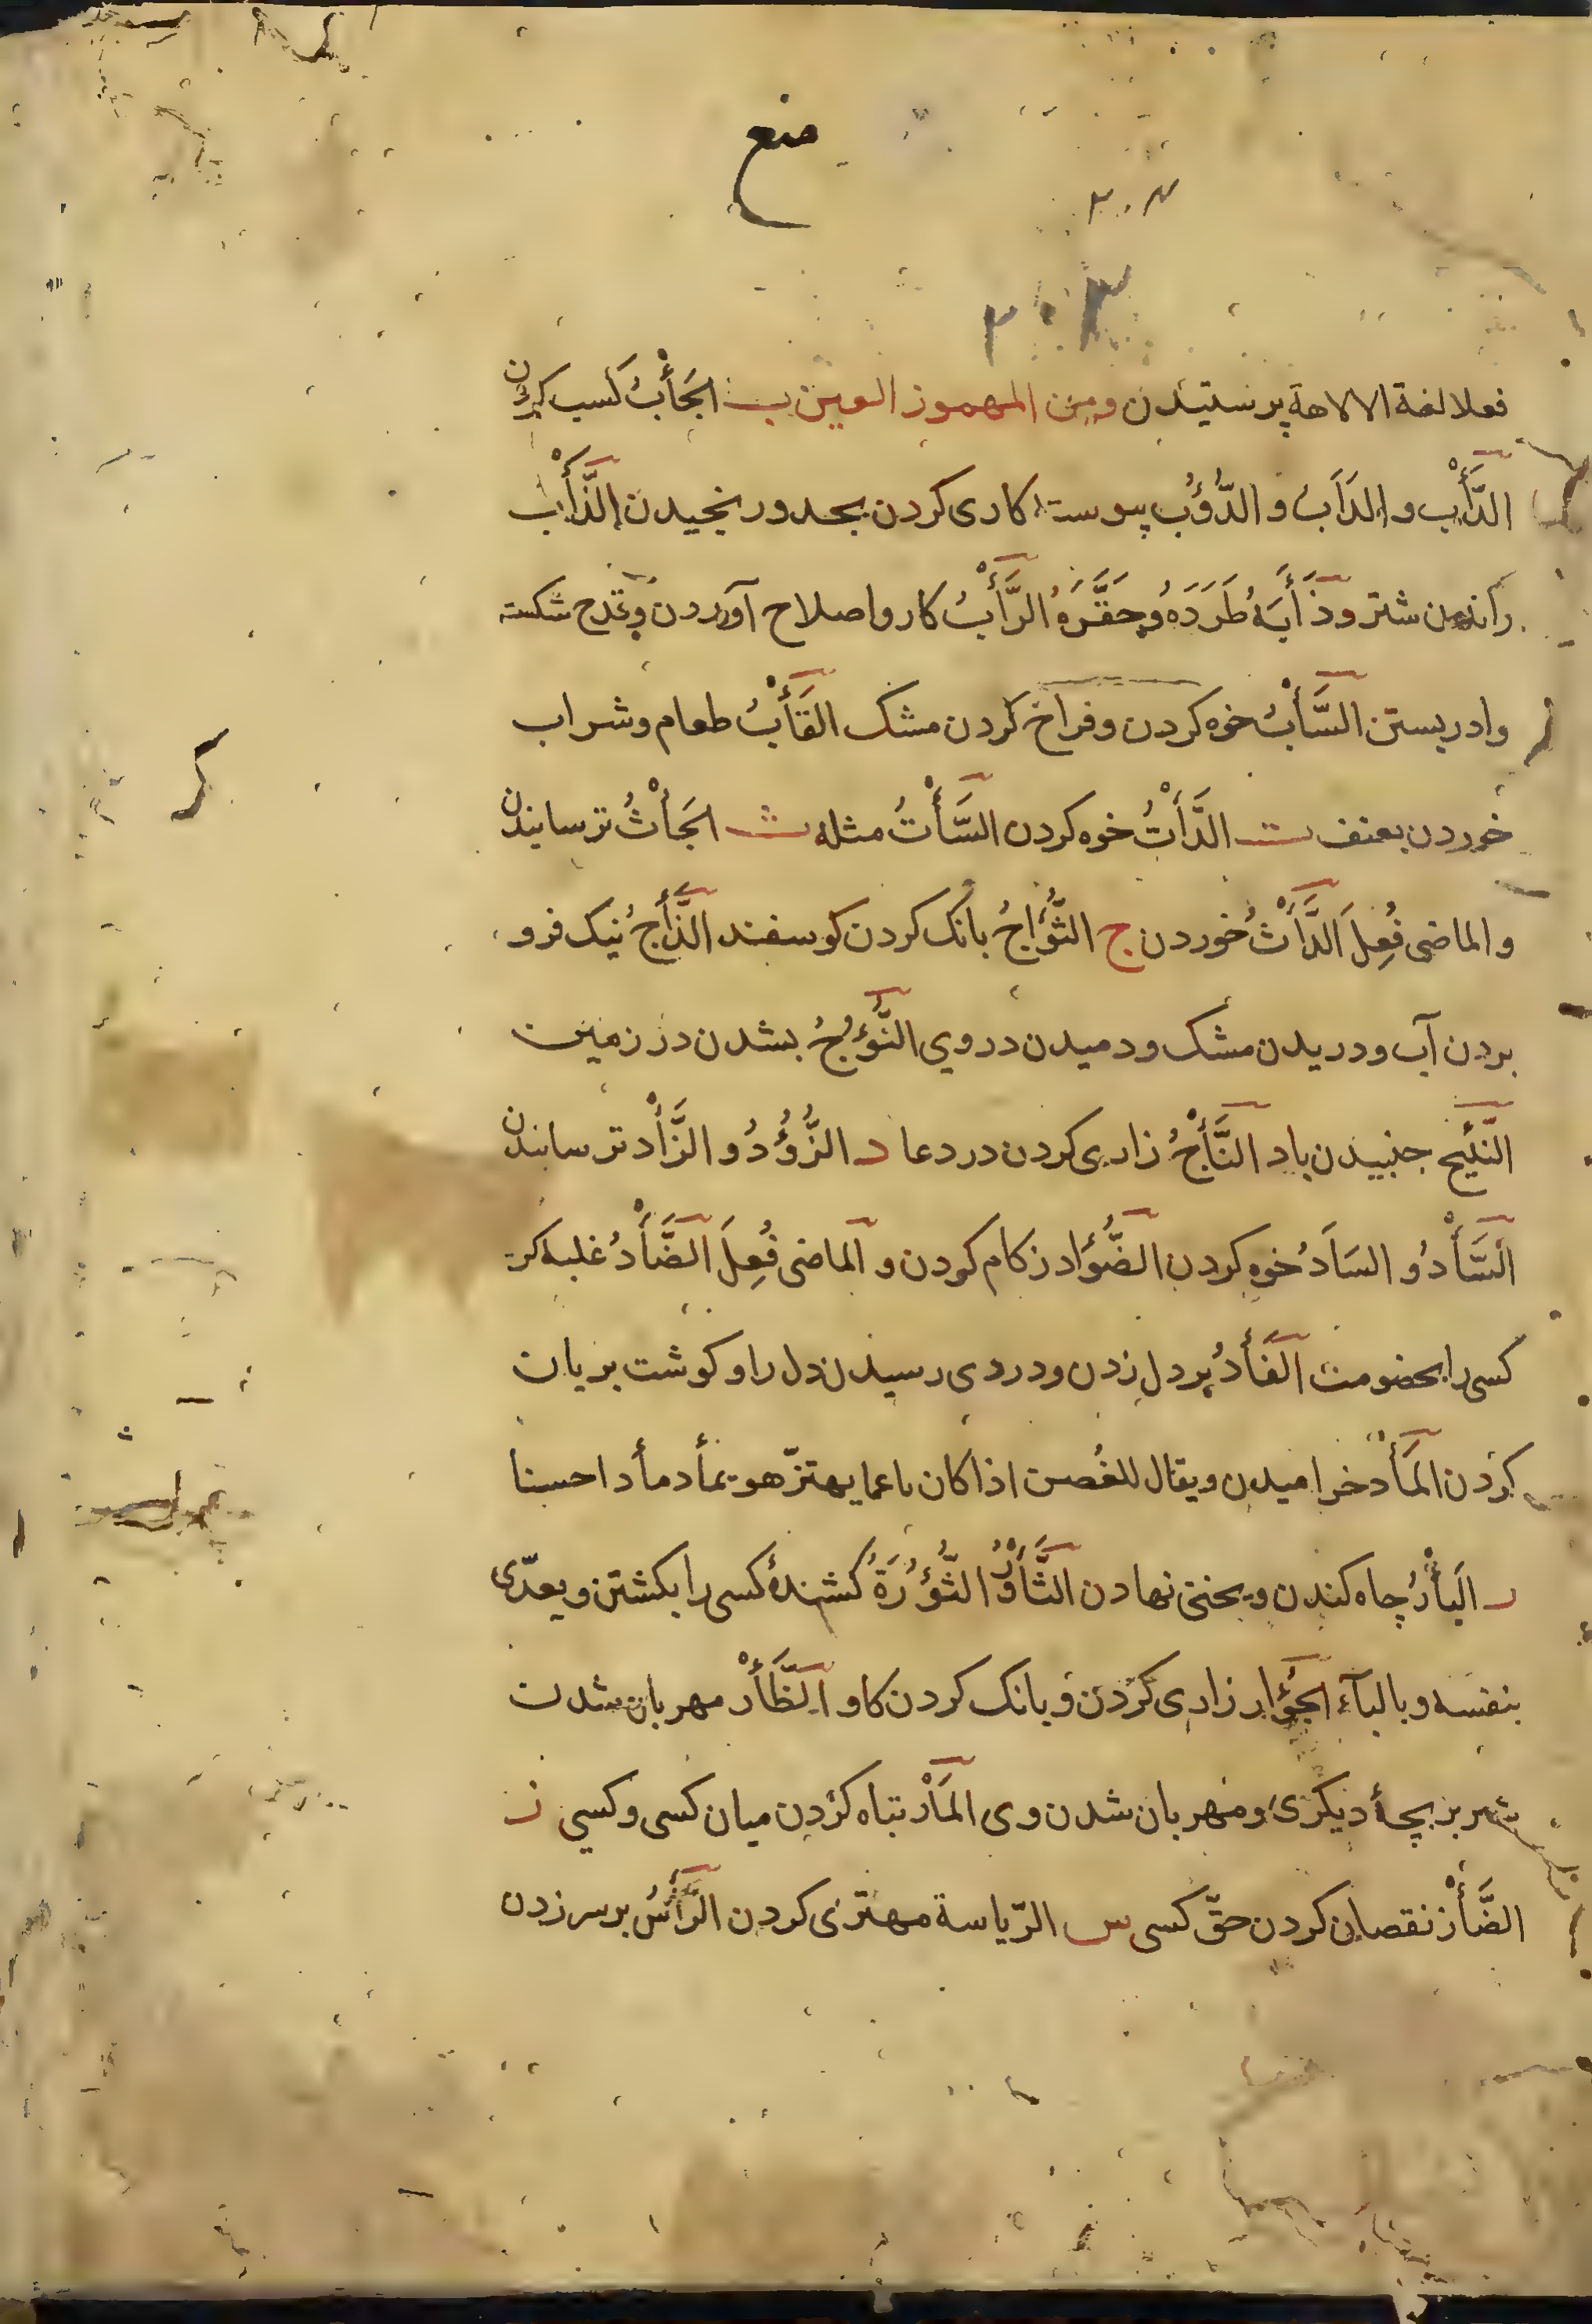 منع
٣٠٢
٣٠٢
فعلا لغة الالاهة پرستیدن ومن المهموز العين ب الجَأْبُ کسب کردن
الدَّأْب و الدَأَبُ و الدُّؤُب پیوسته کاری کردن بجد ورنجیدن الذَّأْب
راندن شتر وذَأَبَهُ طَرَدَهُ وحَقَّرَهُ الرَّأْبُ کار واصلاح آوردن وقدح شکسته
وادربستن السَّأْبُ خوه کردن وفراخ کردن مشک القَأْبُ طعام وشراب
خوردن بعنف ت الذَّأْتُ خوه کردن السَّأْتُ مثله ث الجَأْثُ ترسانیدن
والماضی فُعِلَ الدَّأْثُ خوردن ج الثُّؤَاجُ بانک کردن کوسفند الذَّأْجُ نیک فرو
بردن آب ودریدن مشک ودمیدن دروی النُّؤُجُ بشدن در زمین
النَّئِيج جنبیدن باد النَّأْجُ زاری کردن در دعا د الزُّؤُدُ و الزَّأْد ترسانیدن
السَّأْدُ و السَأَدُ خوه کردن الضُّؤَاد زکام کودن والماضی فُعِلَ الضَّأْدُ غلبه کر
کسی را بخصومت الفَأْدُ بر دل زدن ودردی رسیدن دل را وکوشت بریان
کردن المَأْد خرامیدن ويقال للغُصن اذا كان ناعما يهتزّ هو يمأد مأدا حسنا
ر البَأْرُ چاه کندن وبخنی نهادن الثَّأْرُ و الثُّؤْرَةُ کشندهٔ کسی را بکشتن ويعدّى
بنفسه وبالبآء الجُؤَار زاری کردن و بانک کردن کاو الظَّأْر مهربان شدن
شتر بر بچهٔ دیکری ومهربان شدن وی المَأْر تباه کردن میان کسی وکسی ز
الضَّأْز نقصان کردن حقّ کسی س الرّياسة مهتری کردن الرَّأْسُ بر سر زدن